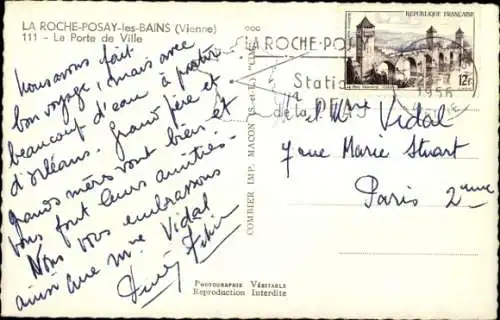 LA ROCHE-POSAY-les-BAINS (Vienne)
111 - La Porte de Ville
Nous avons fait
bon voyage, mais avec
beaucoup d'eau à partir
d'Orléans. Grand père et
grands mères vont bien et
vous font leurs amitiés.
Nous vous embrassons
ainsi que Mme Vidal
COMBIER IMP. MACON
PHOTOGRAPHIE VÉRITABLE
Reproduction Interdite
RÉPUBLIQUE FRANÇAISE
12F
LA ROCHE-POSAY
Stati
de la PEAU
1956
Mme Vidal
7 rue Marie Stuart
Paris 2ème